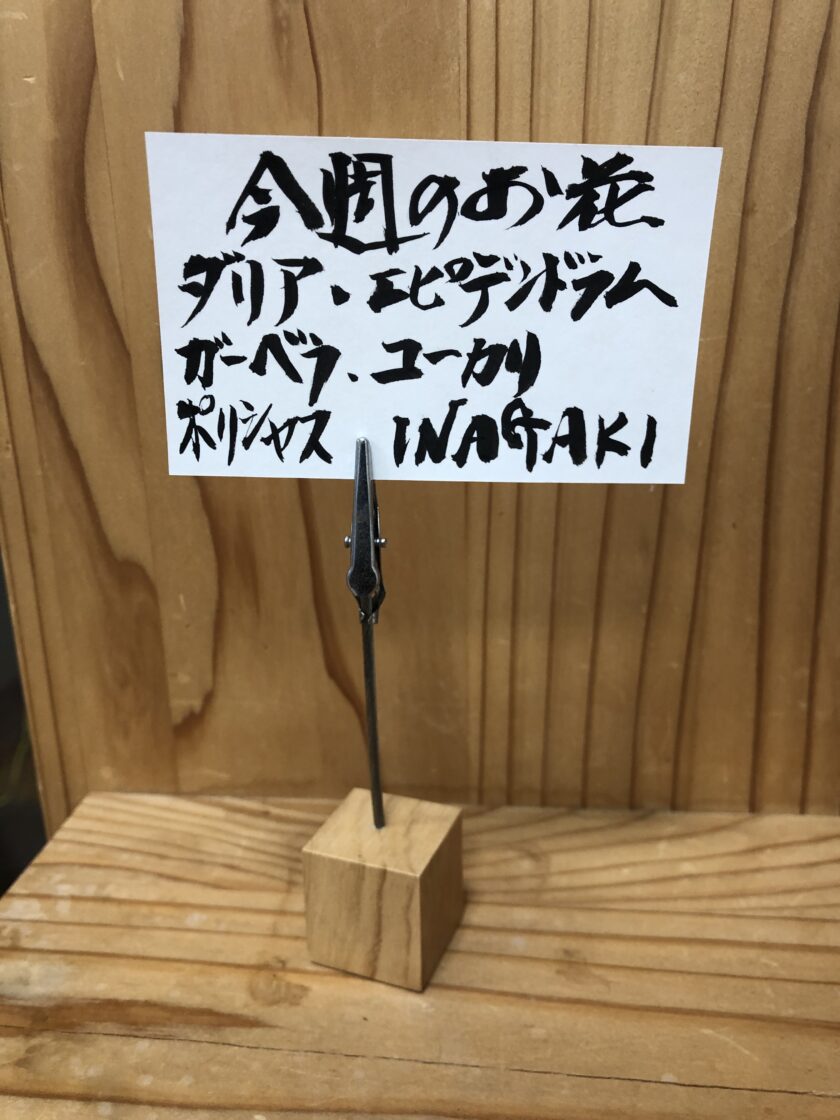 今週のお花
ダリア、エピデンドラム
ガーベラ、ユーカリ
ポリシャス INAGAKI